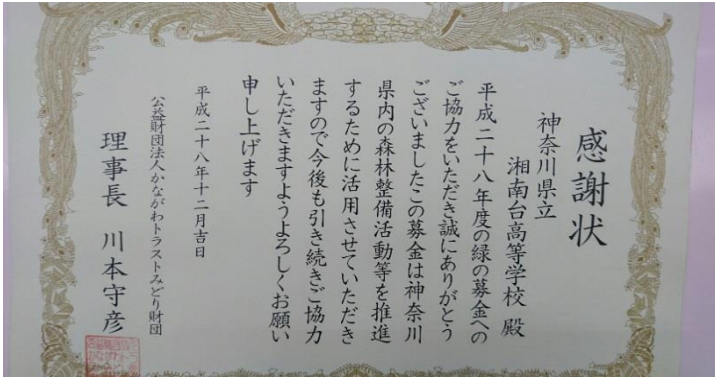 感謝状
神奈川県立
湘南台高等学校 殿
平成二十八年度の緑の募金への
ご協力をいただき誠にありがとう
ございましたこの募金は神奈川
県内の森林整備活動等を推進
するために活用させていただき
ますので今後も引き続きご協力
いただきますようよろしくお願い
申し上げます
平成二十八年十二月吉日
公益財団法人かながわトラストみどり財団
理事長 川本守彦